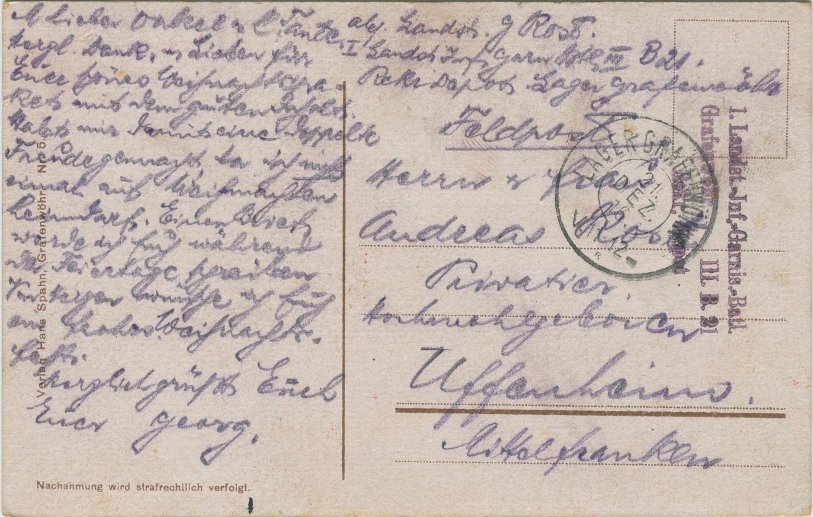 M Lieber Onkel u. l. Tante.
Herzl. Dank, m Lieben für
Euer schönes Weihnachts
ket mit dem guten Inhalt.
Habt mir damit eine Doppelte
Freude gemacht, da ich nicht
einmal auf Weihnachten
heim darf. Einen Brief
werde ich Euch während
der Feiertage schreiben
wünsche ich Euch
ein frohes Weihnachts-
fest.
Herzlich grüßt Euch
Euer Georg.
Nachahmung wird strafrechtlich verfolgt.
Verlag Hans Spahn, Grafenwöhr. No. 5.
abs. Landst. G Ross.
I Landst Inf. Garn. Batl. III B 21.
Rekr Depot Lager Grafenwöhr
Feldpost
Herrn u Frau
Andreas Ross
Privatier
Hochwohlgeboren
Uffenheim.
Mittelfranken
LAGER GRAFENWÖHR
21
DEZ.
VM
1. Landst.-Inf.-Garnis.-Batl.
III. B. 21